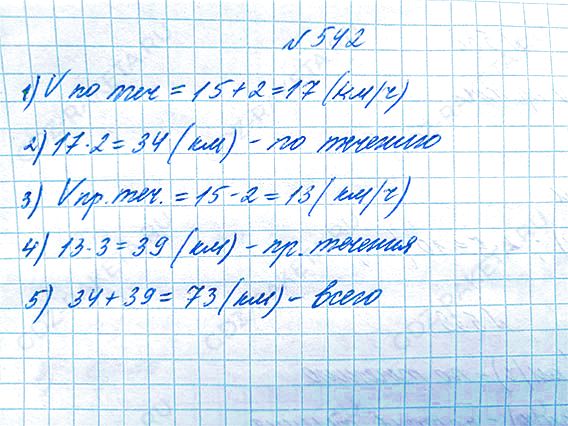 № 542
1) V по теч = 15 + 2 = 17 (км/ч)
2) 17 · 2 = 34 (км) - по течению
3) V пр. теч. = 15 - 2 = 13 (км/ч)
4) 13 · 3 = 39 (км) - пр. течения
5) 34 + 39 = 73 (км) - всего